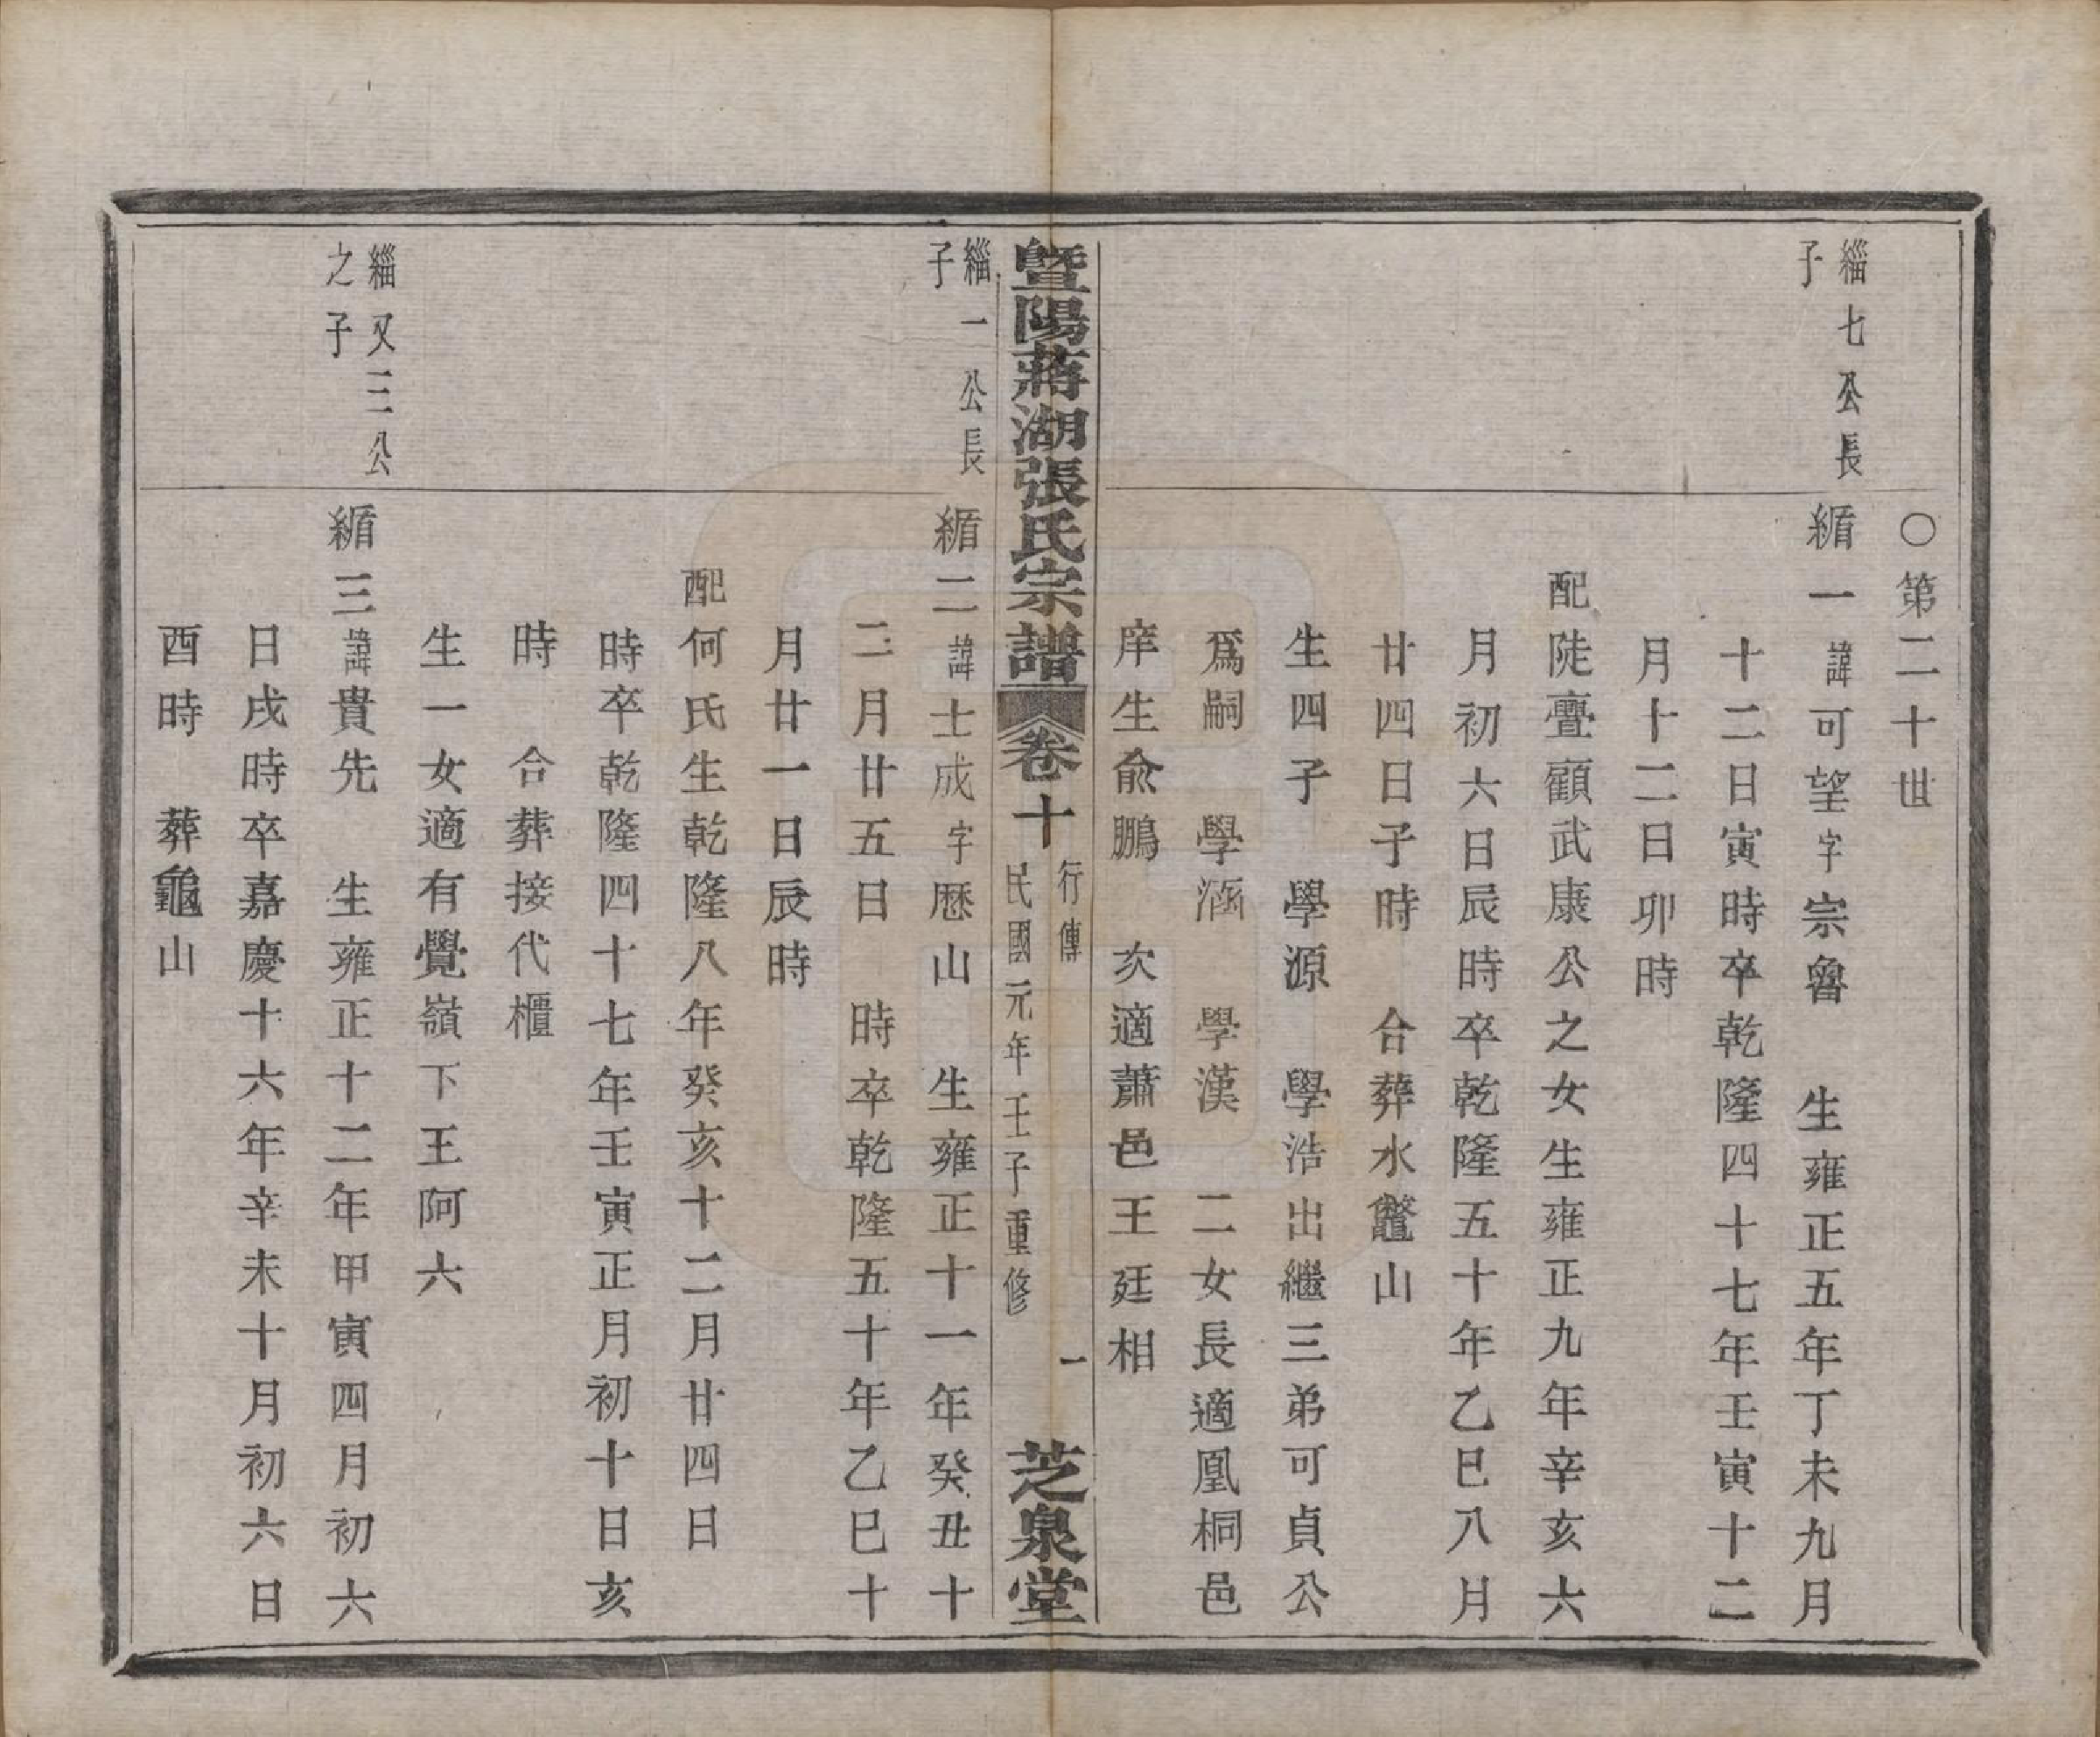 ○第二十世
緇七公長
子
緧一諱可望字宗魯　生雍正五年丁未九月
十二日寅時卒乾隆四十七年壬寅十二
月十二日卯時
配陡亹顧武康公之女生雍正九年辛亥六
月初六日辰時卒乾隆五十年乙巳八月
廿四日子時　合葬水鼈山
生四子　學源　學浩出繼三弟可貞公
爲嗣　學涵　學漢　二女長適凰桐邑
庠生俞鵬　次適蕭邑王廷相
暨陽蔣湖張氏宗譜
卷十
行傳
民國元年壬子重修
一
芝泉堂
緇一公長
子
緧二諱士成字歷山　生雍正十一年癸丑十
二月廿五日　時卒乾隆五十年乙巳十
月廿一日辰時
配何氏生乾隆八年癸亥十二月廿四日
時卒乾隆四十七年壬寅正月初十日亥
時　合葬接代櫃
生一女適有覺嶺下王阿六
緇又三公
之子
緧三諱貴先　生雍正十二年甲寅四月初六
日戌時卒嘉慶十六年辛未十月初六日
酉時　葬龜山